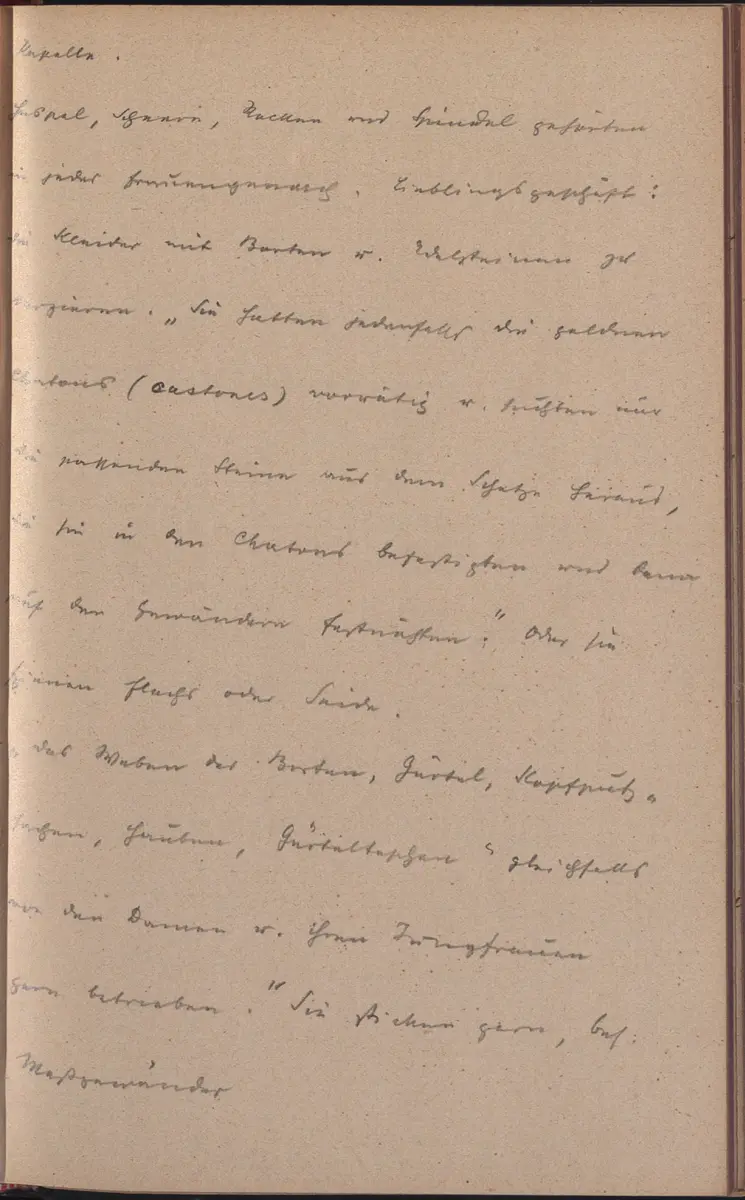 Kapelle.
Haspel, Scheere, Rocken und Spindel gehörten
in jedes Frauengemach. Lieblingsgeschäft:
die Kleider mit Borten u. Edelsteinen zu
verzieren. „Sie hatten jedenfalls die goldnen
Chatons (castones) vorrätig u. suchten nur
die passenden Steine aus dem Schatze heraus,
die sie in den Chatons befestigten und dann
auf den Gewändern festnähten." Oder sie
spienen Flachs oder Seide.
„das Weben der Borten, Gürtel, Kopfputz„
sachen, Hauben, Gürteltaschen gleichfalls
von den Damen u. ihren Jungfrauen
gern betrieben." Sie sticken gern, bes.
Meßgewänder